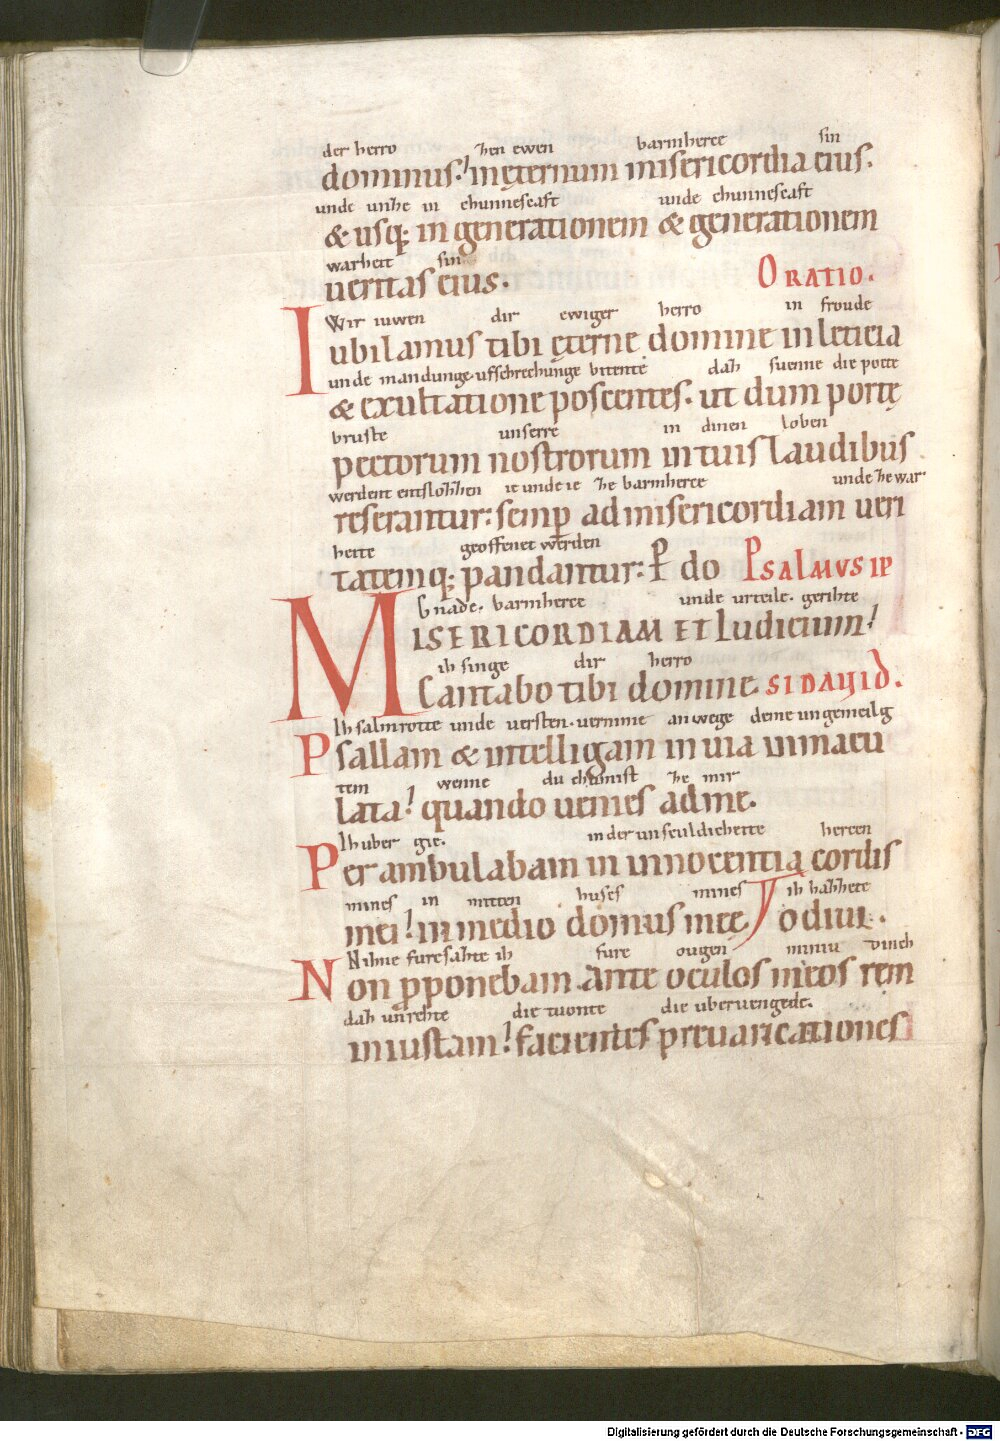 der herro zen ewen barmherce sin
dominus. in ęternum misericordia eius.
unde unze in chunnescaft unde chunnescaft
& usq; in generationem & generationem
warheit sin
ueritas eius. ORATIO.
Wir iuwen dir ewiger herro in froude
Iubilamus tibi ęterne domine in leticia
unde mandunge uffchrechunge bitente daz suenne die porte
& exultatione poscentes. ut dum portę
bruste unserre in dinen loben
pectorum nostrorum in tuis laudibus
werdent entslozzen ie unde ie ze barmherce unde ze war
reserantur: semp ad misericordiam ueri
heite geoffenet werden
tatemq; pandantur: P do PSALMUS IP
Gnade. barmherce unde urteile. gerihte
MISERICORDIAM ET Iudicium!
ih singe dir herro
Cantabo tibi domine. SI DAUID.
Ih salmrotte unde uersten. uernime an wege deme ungemeilg
Psallam & intelligam in uia inmacu
tem wenne du chumist ze mir
lata! quando uenies ad me.
Ih uber gie. in der unsculdicheite hercen
Per ambulabam in innocentia cordis
mines in mitten huses mines ih hazzete
mei! in medio domus meę odiui.
Nihne furesazte ih fure ougen miniu dinch
Non pponebam ante oculos meos rem
daz unrehte die tuonte die uberuengede.
iniustam! facientes preuaricationes
Digitalisierung gefördert durch die Deutsche Forschungsgemeinschaft - DFG